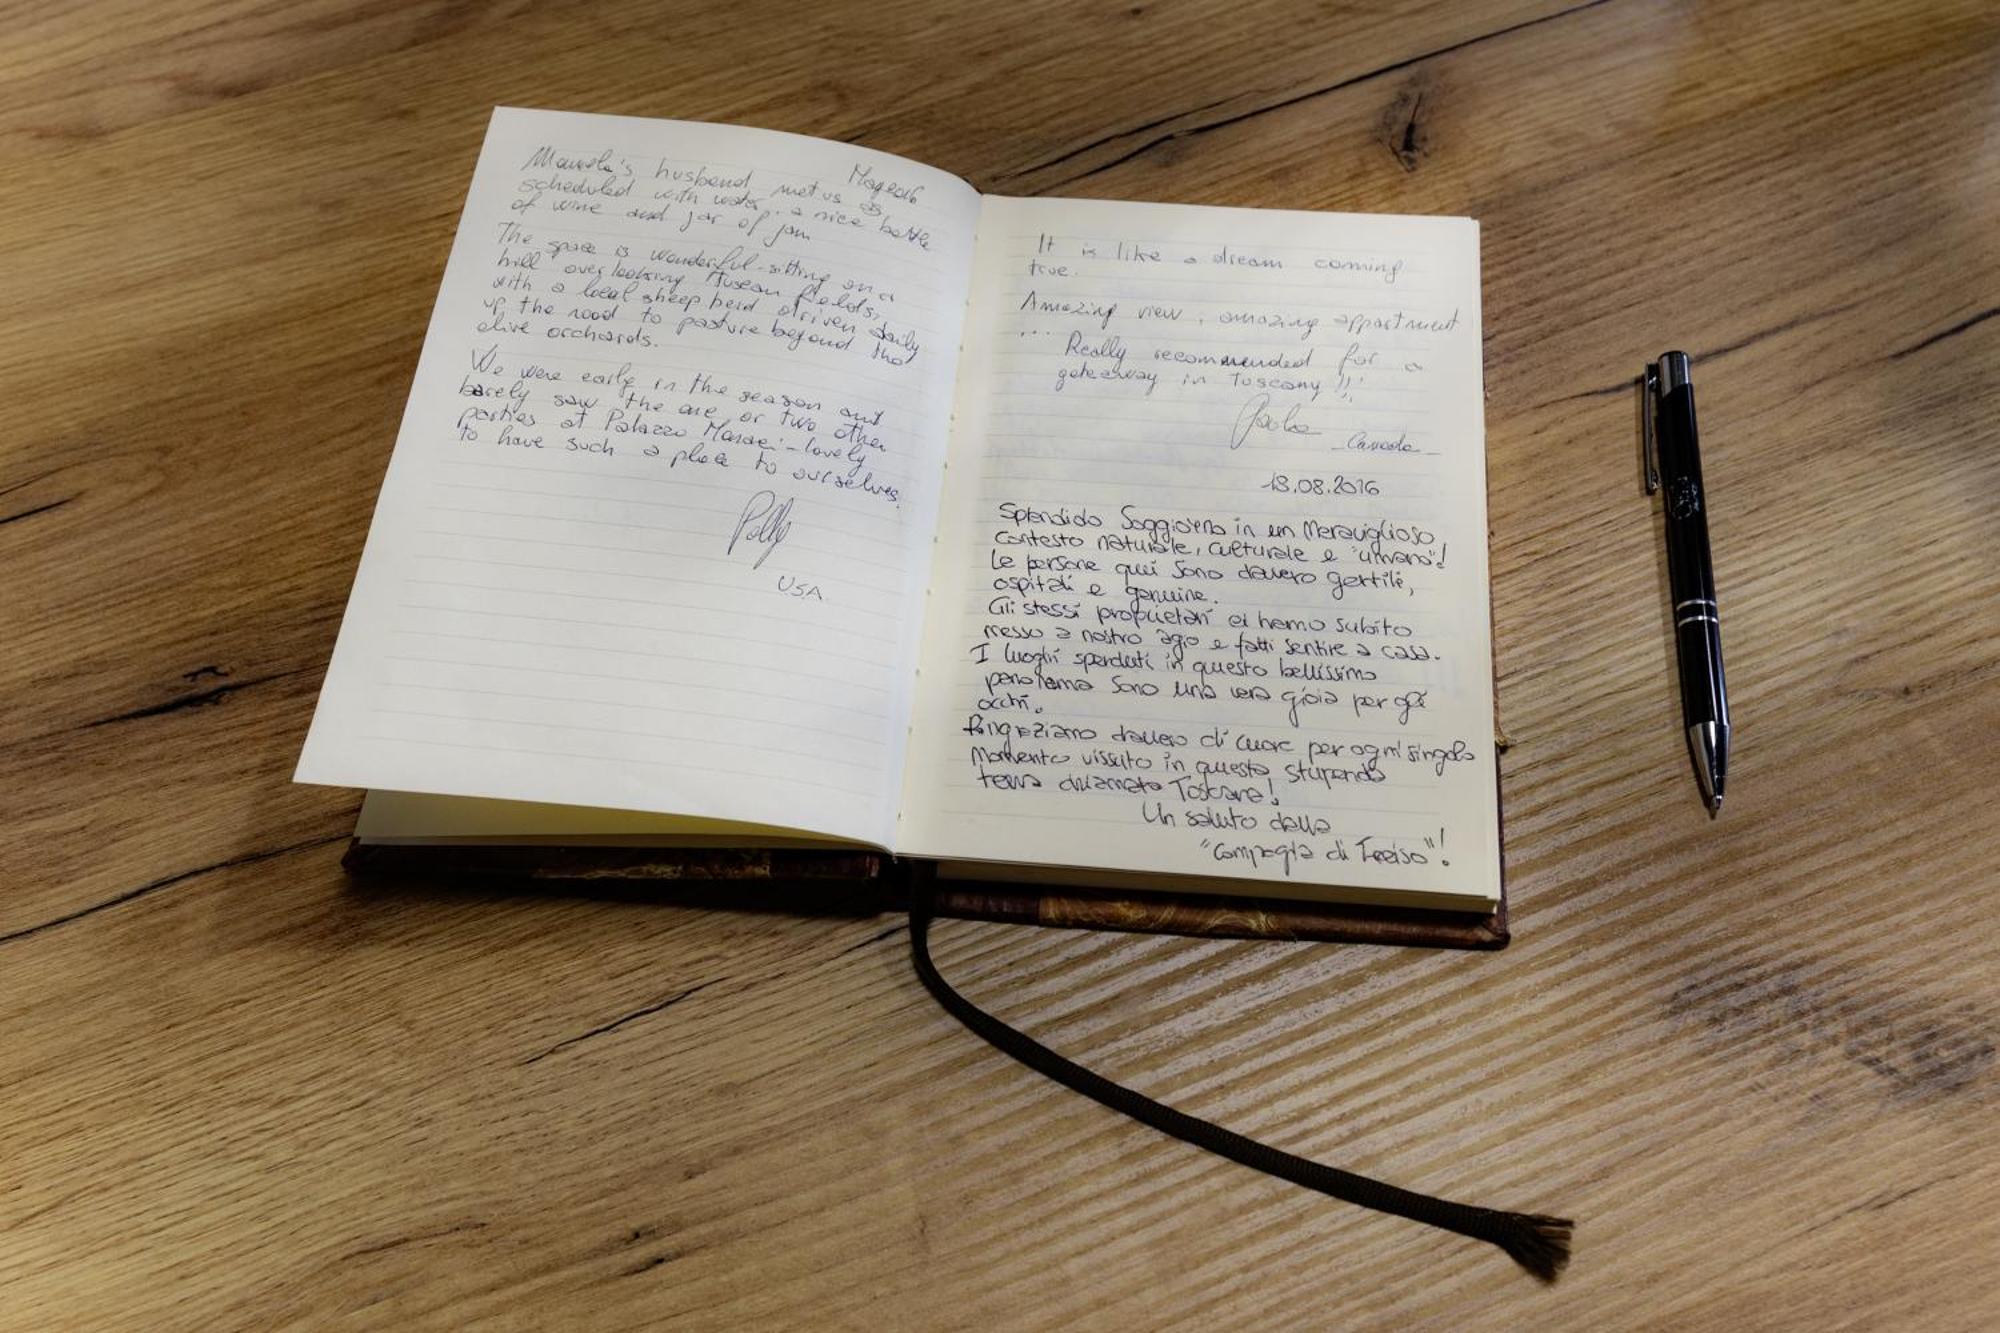 May 2016
Manuela's husband met us as
scheduled with water, a nice bottle
of wine and jar of jam
The space is wonderful - sitting on a
hill overlooking Tuscan fields,
with a local sheep herd driven daily
up the road to pasture beyond the
olive orchards.
We were early in the season and
barely saw the one or two other
parties at Palazzo - lovely
to have such a place to ourselves.
Polly
USA
It is like a dream coming
true.
Amazing view, amazing appartment
...
Really recommended for a
gateaway in Toscany !!!
Paola
- Canada -
18.08.2016
Splendido Soggiorno in un Meraviglioso
contesto naturale, culturale e "umano"!
Le persone qui sono davvero gentili,
ospitali e genuine.
Gli stessi proprietari ci hanno subito
messo a nostro agio e fatti sentire a casa.
I luoghi sperduti in questo bellissimo
panorama sono una vera gioia per gli
occhi.
Ringraziamo davvero di cuore per ogni singolo
momento vissuto in questa stupenda
terra chiamata Toscana!
Un saluto dalla
"Compagnia di"!